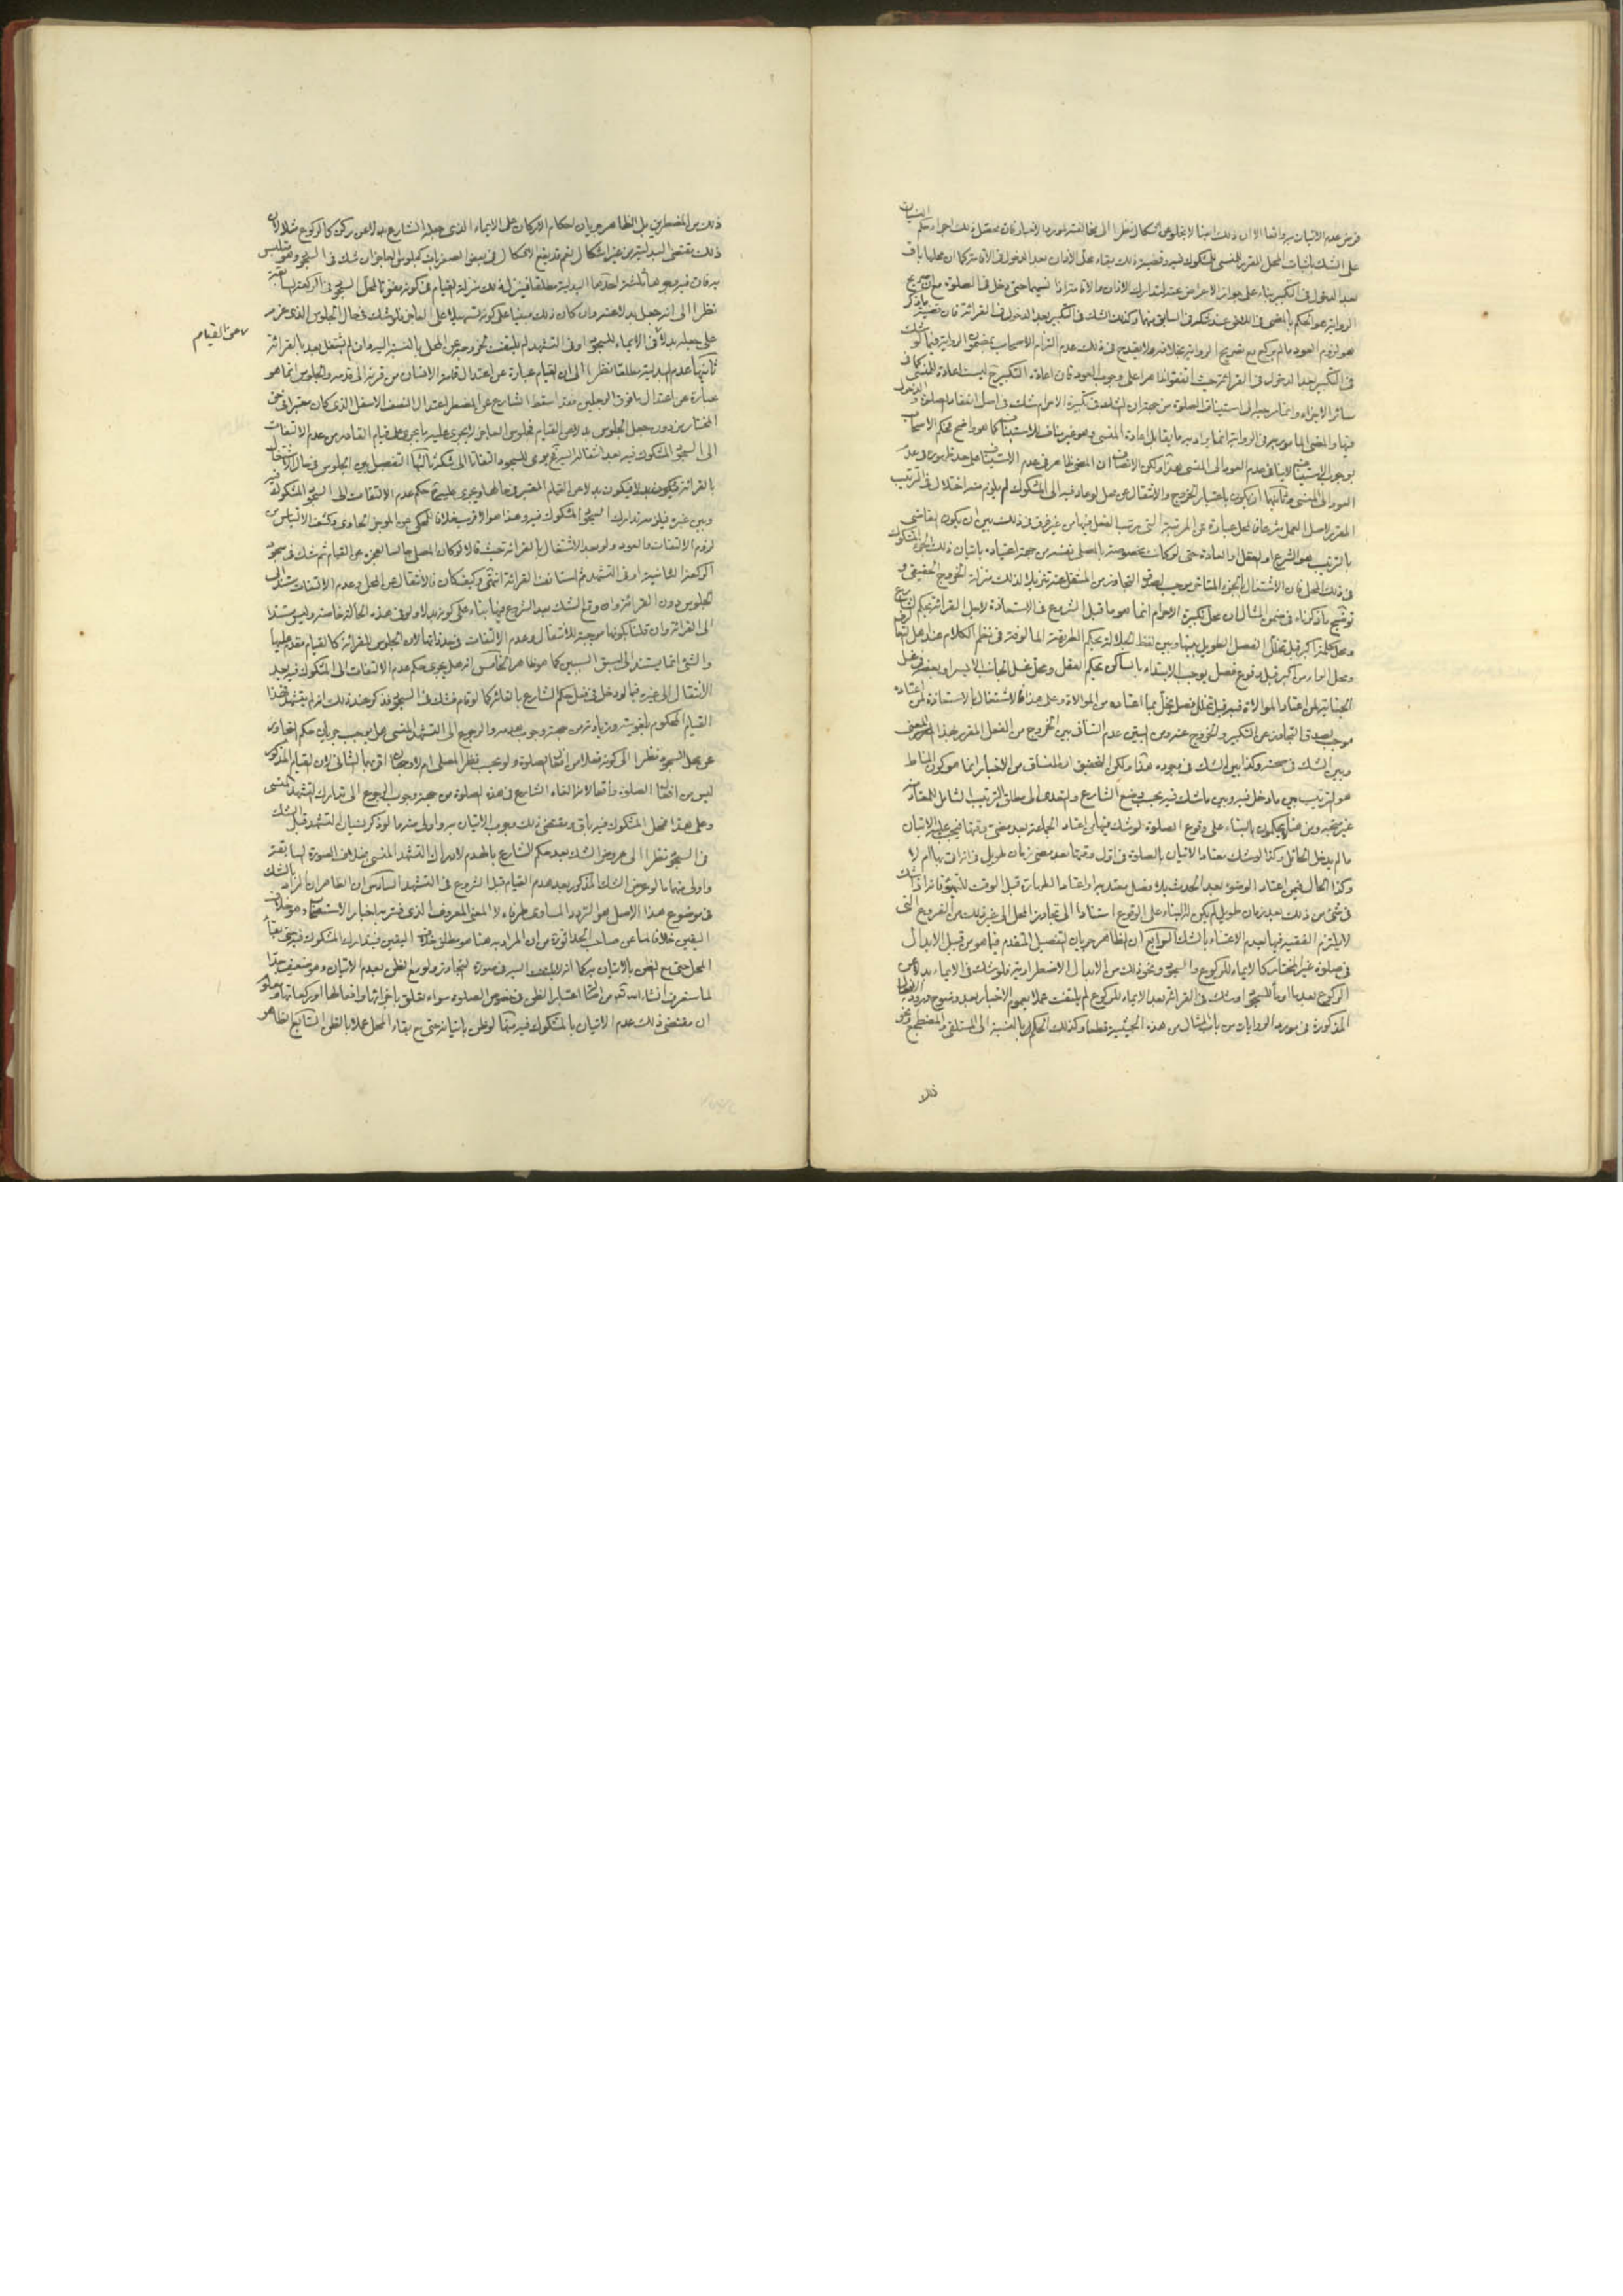 فرض عدم الاتيان به واقعا الا ان ذلك ايضا لا يخلو عن اشكال نظرا الى مخالفته لمورد الاخبار فان
على الشك باثبات المحل المقرر للمنسي للمشكوك فيه وقضية ذلك بقاء محل الاذان بعد الدخول في الاقامة كما ان محلها باق
بعد الدخول في التكبير بناء على جواز الاعراض عنه لتدارك الاذان والاقامة اذا نسيهما حتى دخل في الصلوة مع ان صريح
الرواية هو الحكم بالمضي في عند شكه في السابق منهما وكذلك الشك في التكبير بعد الدخول في القرائة فان قضية ما ذكر
هو لزوم العود ما لم يركع مع تصريح الرواية بخلافه ولا يقدح في ذلك عدم التزام الاصحاب بمضمون الرواية فيما لو شك
في التكبير بعد الدخول في القرائة حيث اتفقوا ظاهرا على وجوب العود فان اعادة التكبير ليست اعادة للمنسي كما في
سائر الاجزاء وانما يرجع الى استيناف الصلوة من جهة ان الشك في تكبيرة الاحرام شك في اصل انعقاد الصلوة والدخول
فيها والمضي المامور به في الرواية انما يراد به ما يقابل اعادة المنسي وهو غير مناف للاستيناف كما هو واضح فحكم الاصحاب
بوجوب الاستيناف لا ينافي عدم العود الى المنسي هذا ولكن الانصاف ان المضي ظاهر في عدم الاستيناف
العود الى المنسي وثانيهما ان يكون باعتبار الخروج والانتقال عن محل لو عاد فيه الى المشكوك لم يلزم منه اختلال في الترتيب
المقرر لاصل العمل شرعا فالمحل عبارة عن المرتبة التي يرتب الفعل فيها من غير فرق في ذلك بين ان يكون القاضي
بالترتيب هو الشرع او العقل او العادة حتى لو كانت مخصوصة بالمصلي نفسه من جهة اعتياده باتيان ذلك الجزء المشكوك
في ذلك المحل فان الاشتغال بالجزء المتاخر يوجب لصدق التجاوز من المنتقل عنه تنزيلا لذلك منزلة الخروج الحقيقي و
توضيح ما ذكرناه في ضمن المثال ان محل تكبيرة الاحرام انما هو ما قبل الشروع في الاستعاذة لاجل القرائة بحكم الشارع
ومحل كلمة اكبر قبل تخلل الفصل الطويل بينها وبين لفظ الجلالة بحكم الطريقة المالوفة في نظم الكلام عند اهل
ومحل الراء من اكبر قبل وقوع فصل يوجب الابتداء بالساكن بحكم العقل ومحل غسل الجانب الايسر او بعضه في غسل
الجنابة لمن اعتاد الموالاة فيه قبل تخلل فصل يخل بما اعتاده من الموالاة وعلى هذا فالاشتغال بالاستعاذة لمن اعتاده
موجب لصدق التجاوز عن التكبير والخروج عنه ومن هنا يتبين عدم التنافي بين الخروج من الفعل المقرر بهذا المعنى
وبين الشك في صحته وكذا بين الشك في وجوده هذا ولكن التحقيق ان المنساق من الاخبار انما هو كون المناط
هو الترتيب بين ما دخل فيه وبين ما شك فيه بحسب وضع الشارع والتعدي الى مطلق الترتيب الشامل للمعتاد
غير متجه ومن هنا لا يحكمون بالبناء على وقوع الصلوة لو شك فيها من اعتاد الجماعة بعد مضي وقتها فيجب عليه الاتيان
ما لم يدخل الحائل وكذا لو شك معتاد الاتيان بالصلوة في اول وقتها بعد مضي زمان طويل في انه اتى بها ام لا
وكذا الحال فيمن اعتاد الوضوء بعد الحدث بلا فصل يعتد به او اعتاد الطهارة قبل الوقت للتهيؤ فانه اذا شك
في شيء من ذلك بعد زمان طويل لم يكن له البناء على الوقوع استنادا الى تجاوز المحل الى غير ذلك من الفروع التي
لا يلتزم الفقيه فيها بعدم الاعتناء بالشك الرابع ان الظاهر جريان التفصيل المتقدم فيما هو من قبيل الابدال
في صلوة غير المختار كالايماء للركوع والسجود ونحو ذلك من الابدال الاضطرارية فلو شك في الايماء بدلا عن
الركوع بعد ما اومأ للسجود او شك في القرائة بعد الايماء للركوع لم يلتفت عملا بعموم الاخبار بعد وضوح ورود الافعال
المذكورة في مورد الروايات من باب المثال من هذه الحيثية قطعا وكذلك الحكم بالنسبة الى المستلقي والمضطجع ونحو
ذلك
ذلك من المضطرين بل الظاهر جريان احكام الاركان على الايماء الذي جعله الشارع بدلا عن ركن كالركوع مثلا لان
ذلك مقتضى البدلية من غير اشكال نعم قد يقع الاشكال في بعض الصغريات كجلوس العاجز ان شك في السجود وهو متلبس
به فان فيه وجوها ثلثة احدها البدلية مطلقا فينزل ذلك منزلة القيام في كونه مفوتا لمحل السجود في الركعة السابقة
نظرا الى انه جعل بدلا عنه وان كان ذلك مبنيا على كونه تسهيلا على العاجز فلو شك في حال الجلوس الذي عزم
على جعله بدلا عن القيام في الايماء للسجود او في التشهد لم يلتفت لخروجه عن المحل بالنسبة اليه وان لم يشتغل بعد بالقرائة
ثانيها عدم البدلية مطلقا نظرا الى ان القيام عبارة عن اعتدال قامة الانسان من قرنه الى قدمه والجلوس انما هو
عبارة عن اعتدال ما فوق الرجلين فقد اسقط الشارع عن المضطر اعتدال النصف الاسفل الذي كان معتبرا في حق
المختار من دون جعل الجلوس بدلا عن القيام فجلوس العاجز لا يجري عليه ما يجري على قيام القادر من عدم الالتفات
الى السجود المشكوك فيه بعد انتقاله اليه ثالثها التفصيل بين الجلوس في حال الاشتغال
بالقرائة فيكون بدلا عن القيام المعتبر في حالها ويجري عليه حكم عدم الالتفات الى السجود المشكوك فيه
وبين غيره فيلزمه تدارك السجود المشكوك فيه وهذا هو الاقرب خلافا للمحكي عن الموجز الحاوي وكشف الالتباس من
لزوم الالتفات والعود ولو بعد الاشتغال بالقرائة حيث قالا لو كان المصلي جالسا لعجزه عن القيام ثم شك في سجود
الركعة الثانية او في التشهد ثم استانف القرائة انتهى وكيف كان فالانتقال عن المحل وعدم الالتفات مستند الى
الجلوس دون القرائة وان وقع الشك بعد الشروع فيها بناء على كونه بدلا ولو في هذه الحالة خاصة وليس مستندا
الى القرائة وان قلنا بكونها موجبة للانتقال وعدم الالتفات في حد ذاتها لان الجلوس للقرائة كالقيام مقدم عليها
والشيء انما يستند الى اسبق السببين كما هو ظاهر الخامس انه هل يجري حكم عدم الالتفات الى المشكوك فيه بعد
الانتقال الى غيره فيما لو دخل في فعل حكم الشارع بالغائه كما لو قام فشك في السجود فذكر عند ذلك انه لم يتشهد فهذا
القيام المحكوم بلغويته وزيادته من جهة وجوب هدمه والرجوع الى التشهد المنسي هل يوجب جريان حكم التجاوز
عن محل السجود نظرا الى كونه فعلا من افعال الصلوة ولو بحسب نظر المصلي ام لا وجهان اقربهما الثاني لان القيام المذكور
ليس من افعال الصلوة واقعا لالغاء الشارع في هذه الصلوة من جهة وجوب الرجوع الى تدارك التشهد المنسي
وعلى هذا فمحل المشكوك فيه باق ومقتضى ذلك وجوب الاتيان به واولى منه ما لو ذكر نسيان التشهد قبل الشك
في السجود نظرا الى عروض الشك بعد حكم الشارع بالهدم لادراك التشهد المنسي بخلاف الصورة السابقة
واولى منهما ما لو عرض الشك المذكور بعد هدم القيام قبل الشروع في التشهد السادس ان الظاهر ان المراد بالشك
في موضوع هذا الاصل هو التردد المساوي طرفاه لا المعنى المعروف الذي فسر به اخبار الاستصحاب وهو خلاف
اليقين خلافا لما عن صاحب الحدائق من ان المراد به هنا هو مطلق خلاف اليقين فيتدارك المشكوك فيه في بقاء
المحل حتى مع الظن بالاتيان به كما انه لا يلتفت اليه في صورة التجاوز ولو مع الظن بعدم الاتيان وهو ضعيف جدا
لما ستعرف انشاء الله تعالى من اعتبار الظن في خصوص الصلوة سواء تعلق باجزائها وافعالها او ركعاتها ومعلوم
ان مقتضى ذلك عدم الاتيان بالمشكوك فيه سابقا لو ظن باتيانه حتى مع بقاء المحل عملا بالظن السابع الظاهر
بدلا عن القيام